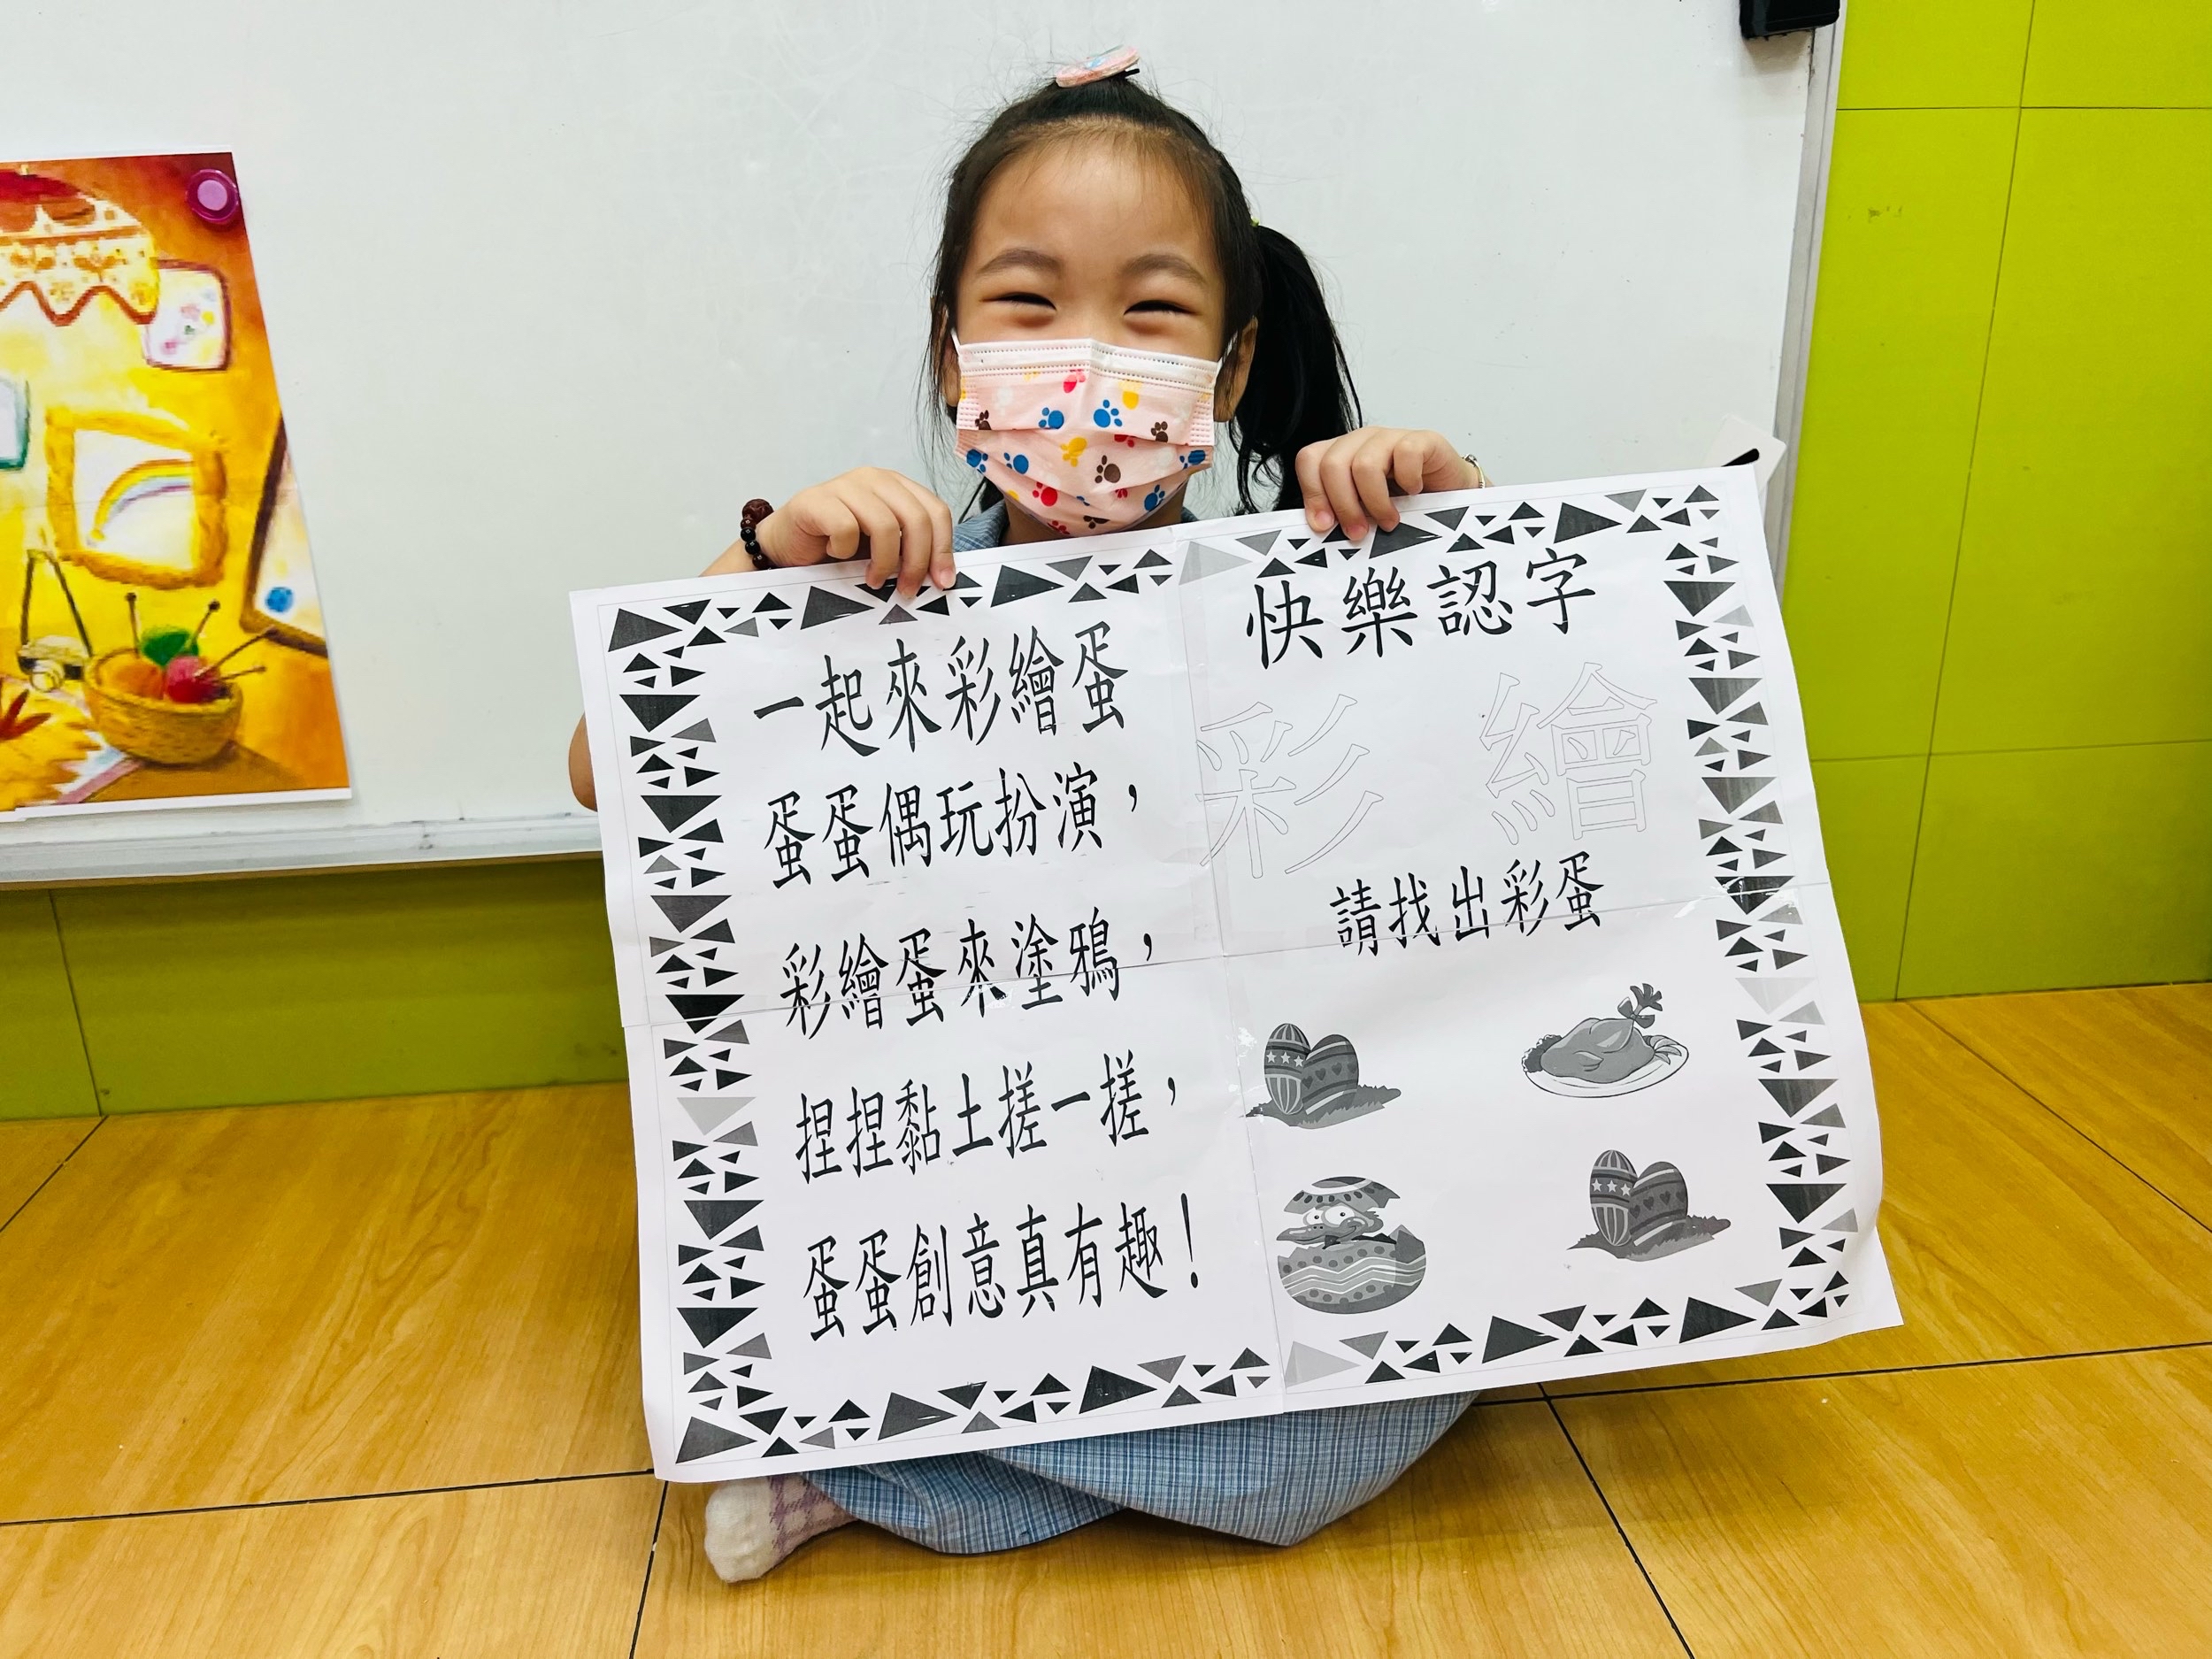 一起來彩繪蛋
蛋蛋偶玩扮演，
彩繪蛋來塗鴉，
捏捏黏土搓一搓，
蛋蛋創意真有趣！
快樂認字
彩 繪
請找出彩蛋